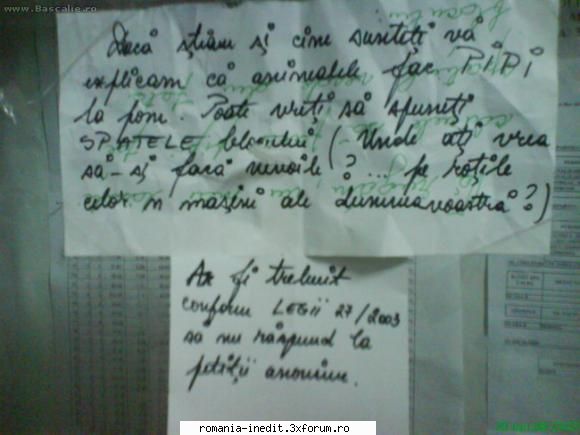 www.Bascalie.ro
Dacă știam și cine sunteți vă
explicam că animalele fac PiPi
la pom. Poate vreți să spuneți
SPATELE blocului (Unde ați vrea
să-și facă nevoile? ... pe roțile
celor n mașini ale dumneavoastră?)
Ar fi trebuit
conform LEGII 27/2003
să nu răspund la
petiții anonime.
romania-inedit.3xforum.ro